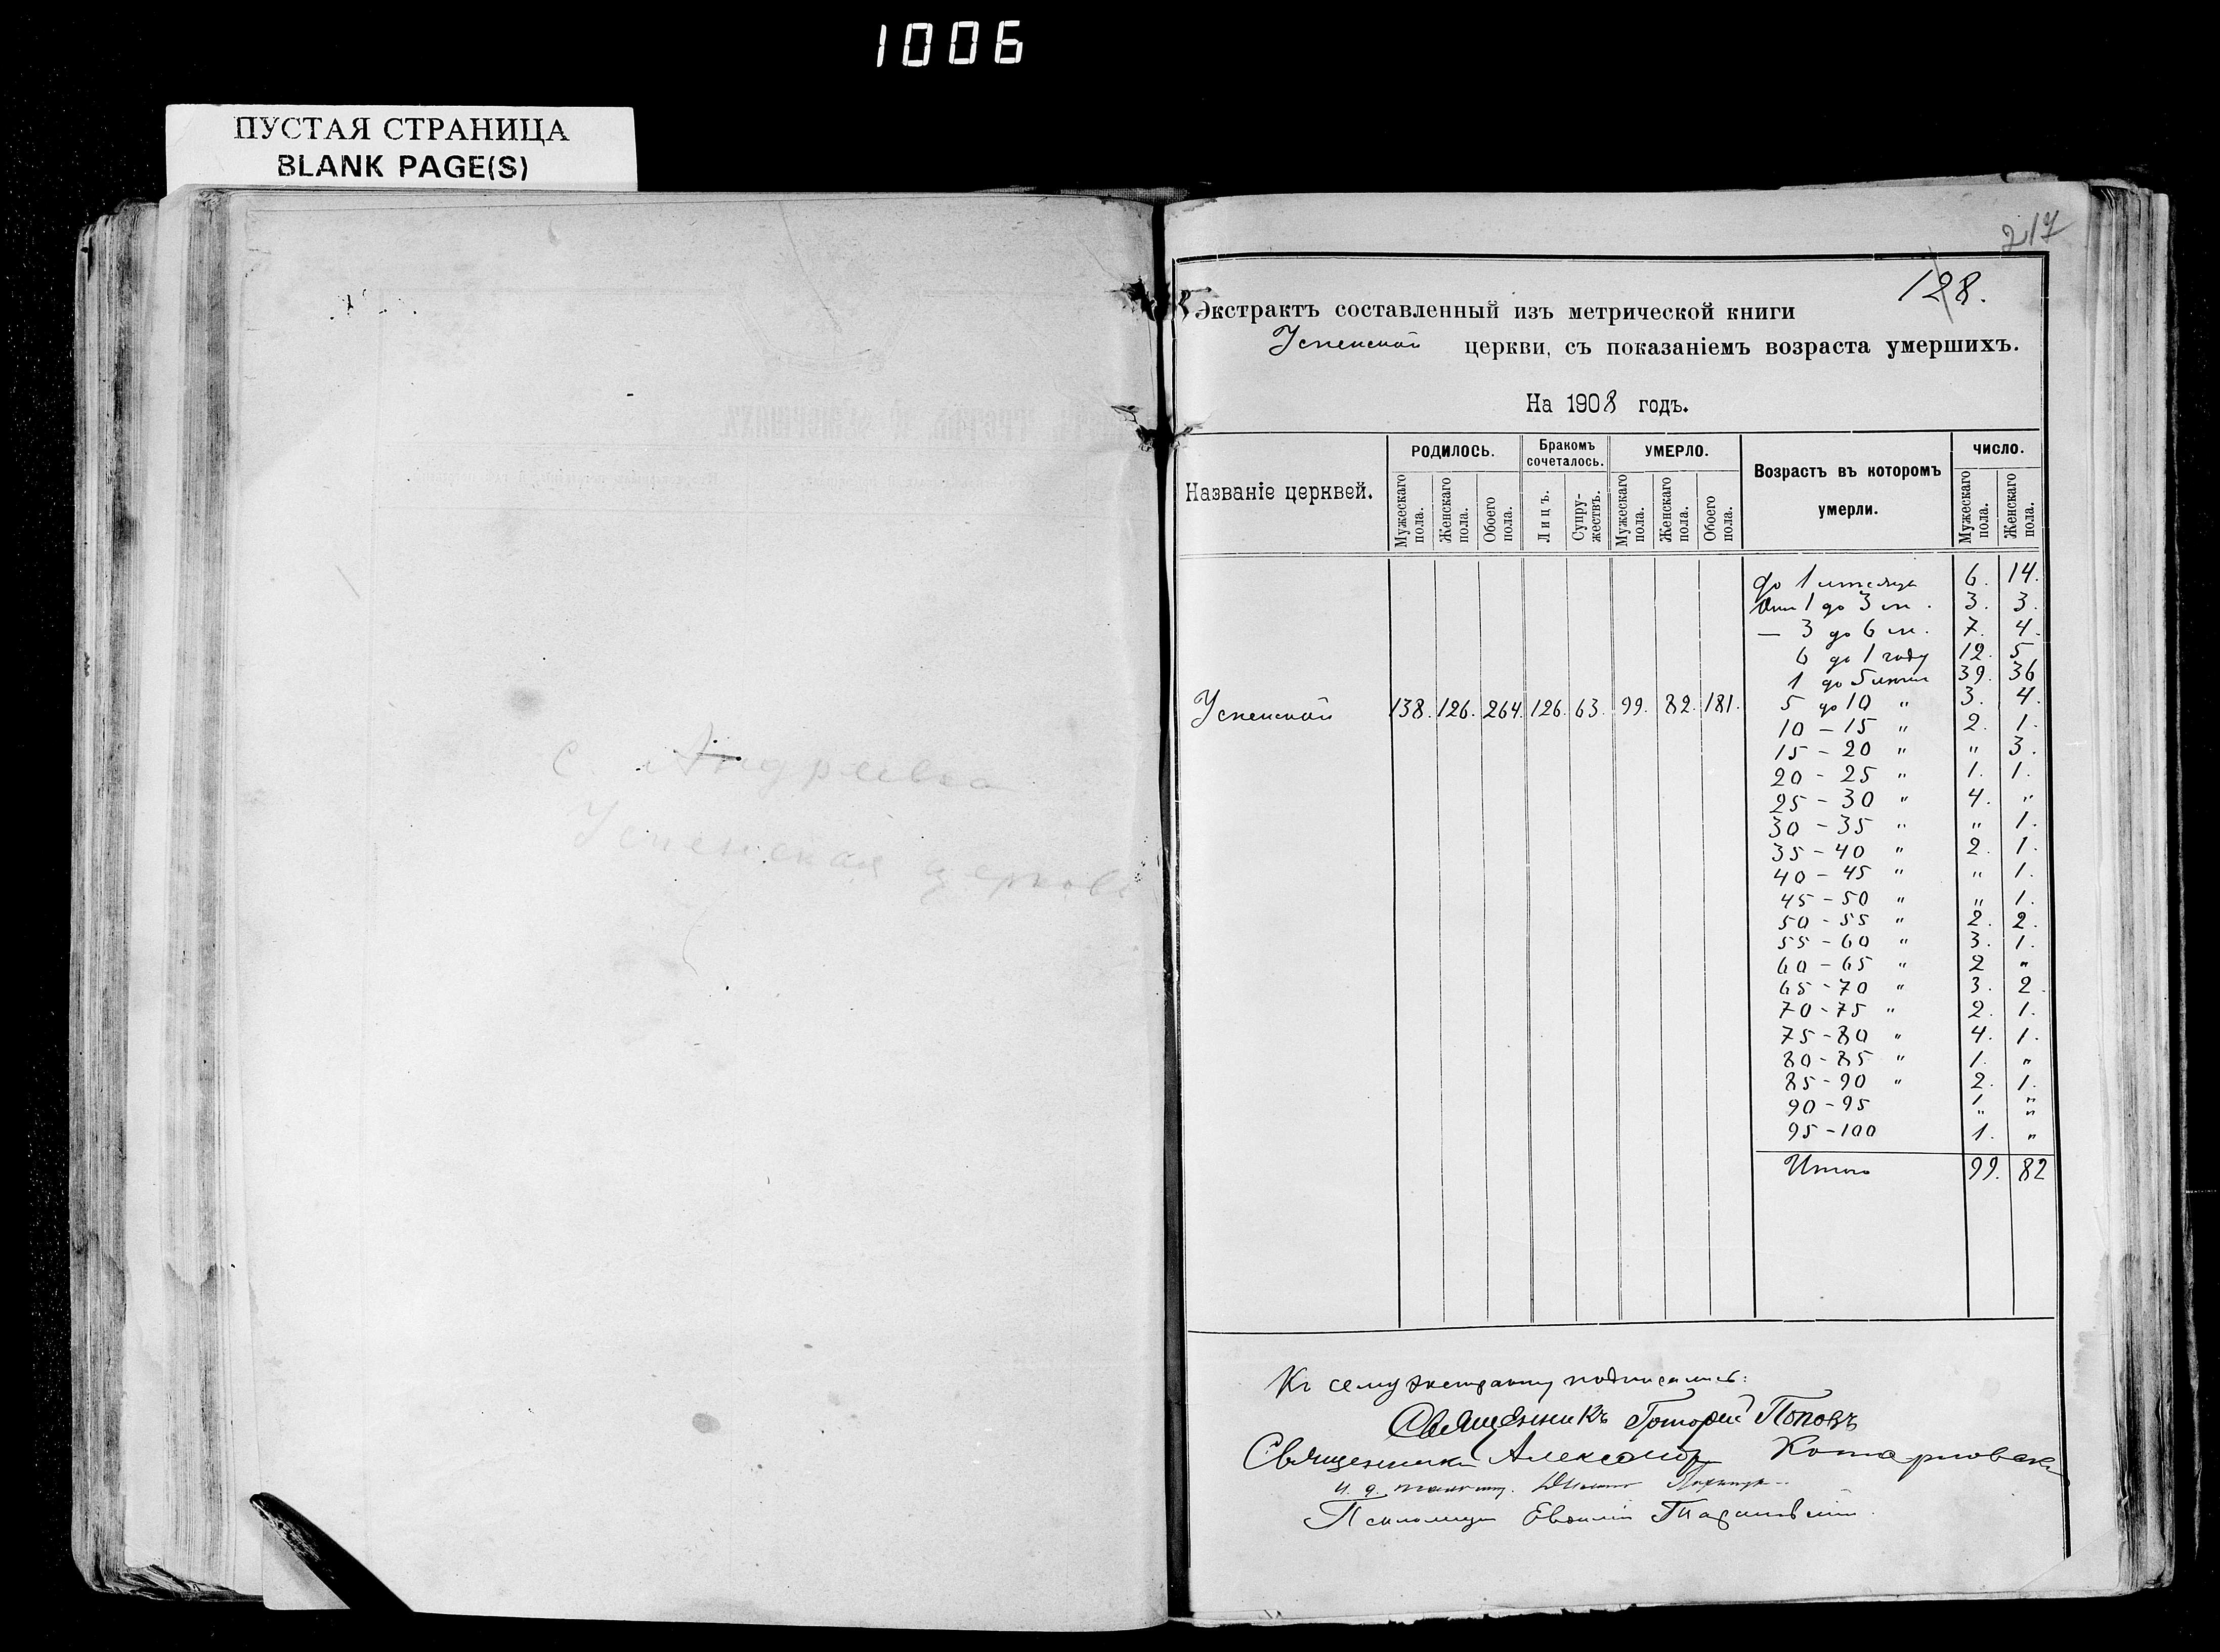 1006
ПУСТАЯ СТРАНИЦА
BLANK PAGE(S)
с. Андреевка
Успенская церковь
217
128.
Экстрактъ составленный изъ метрической книги
Успенской церкви, съ показаніемъ возраста умершихъ.
На 1908 годъ.
Названіе церквей.
РОДИЛОСЬ.
Мужескаго пола.
Женскаго пола.
Обоего пола.
Бракомъ сочеталось.
Лицъ.
Супружествъ.
УМЕРЛО.
Мужескаго пола.
Женскаго пола.
Обоего пола.
Возрастъ въ которомъ умерли.
ЧИСЛО.
Мужескаго пола.
Женскаго пола.
Успенской 138. 126. 264. 126. 63. 99. 82. 181.
до 1 мѣсяца 6. 14.
Отъ 1 до 3 м. 3. 3.
— 3 до 6 м. 7. 4.
6 до 1 году 12. 5
1 до 5 лѣтъ 39. 36
5 до 10 " 3. 4.
10 – 15 " 2. 1.
15 – 20 " " 3.
20 - 25 " 1. 1.
25 - 30 " 4. "
30 - 35 " " 1.
35 - 40 " 2. 1.
40 - 45 " " 1.
45 - 50 " " 1.
50 - 55 " 2. 2.
55 - 60 " 3. 1.
60 - 65 " 2 "
65 - 70 " 3. 2
70 - 75 " 2. 1.
75 - 80 " 4. 1.
80 - 85 " 1. "
85 - 90 " 2. 1.
90 - 95 " "
95 - 100 1. "
Итого 99. 82
Къ сему экстракту подписались:
Священникъ Григорій Поповъ
Священникъ Александръ
и. д.
Псаломщ. Евѳимій